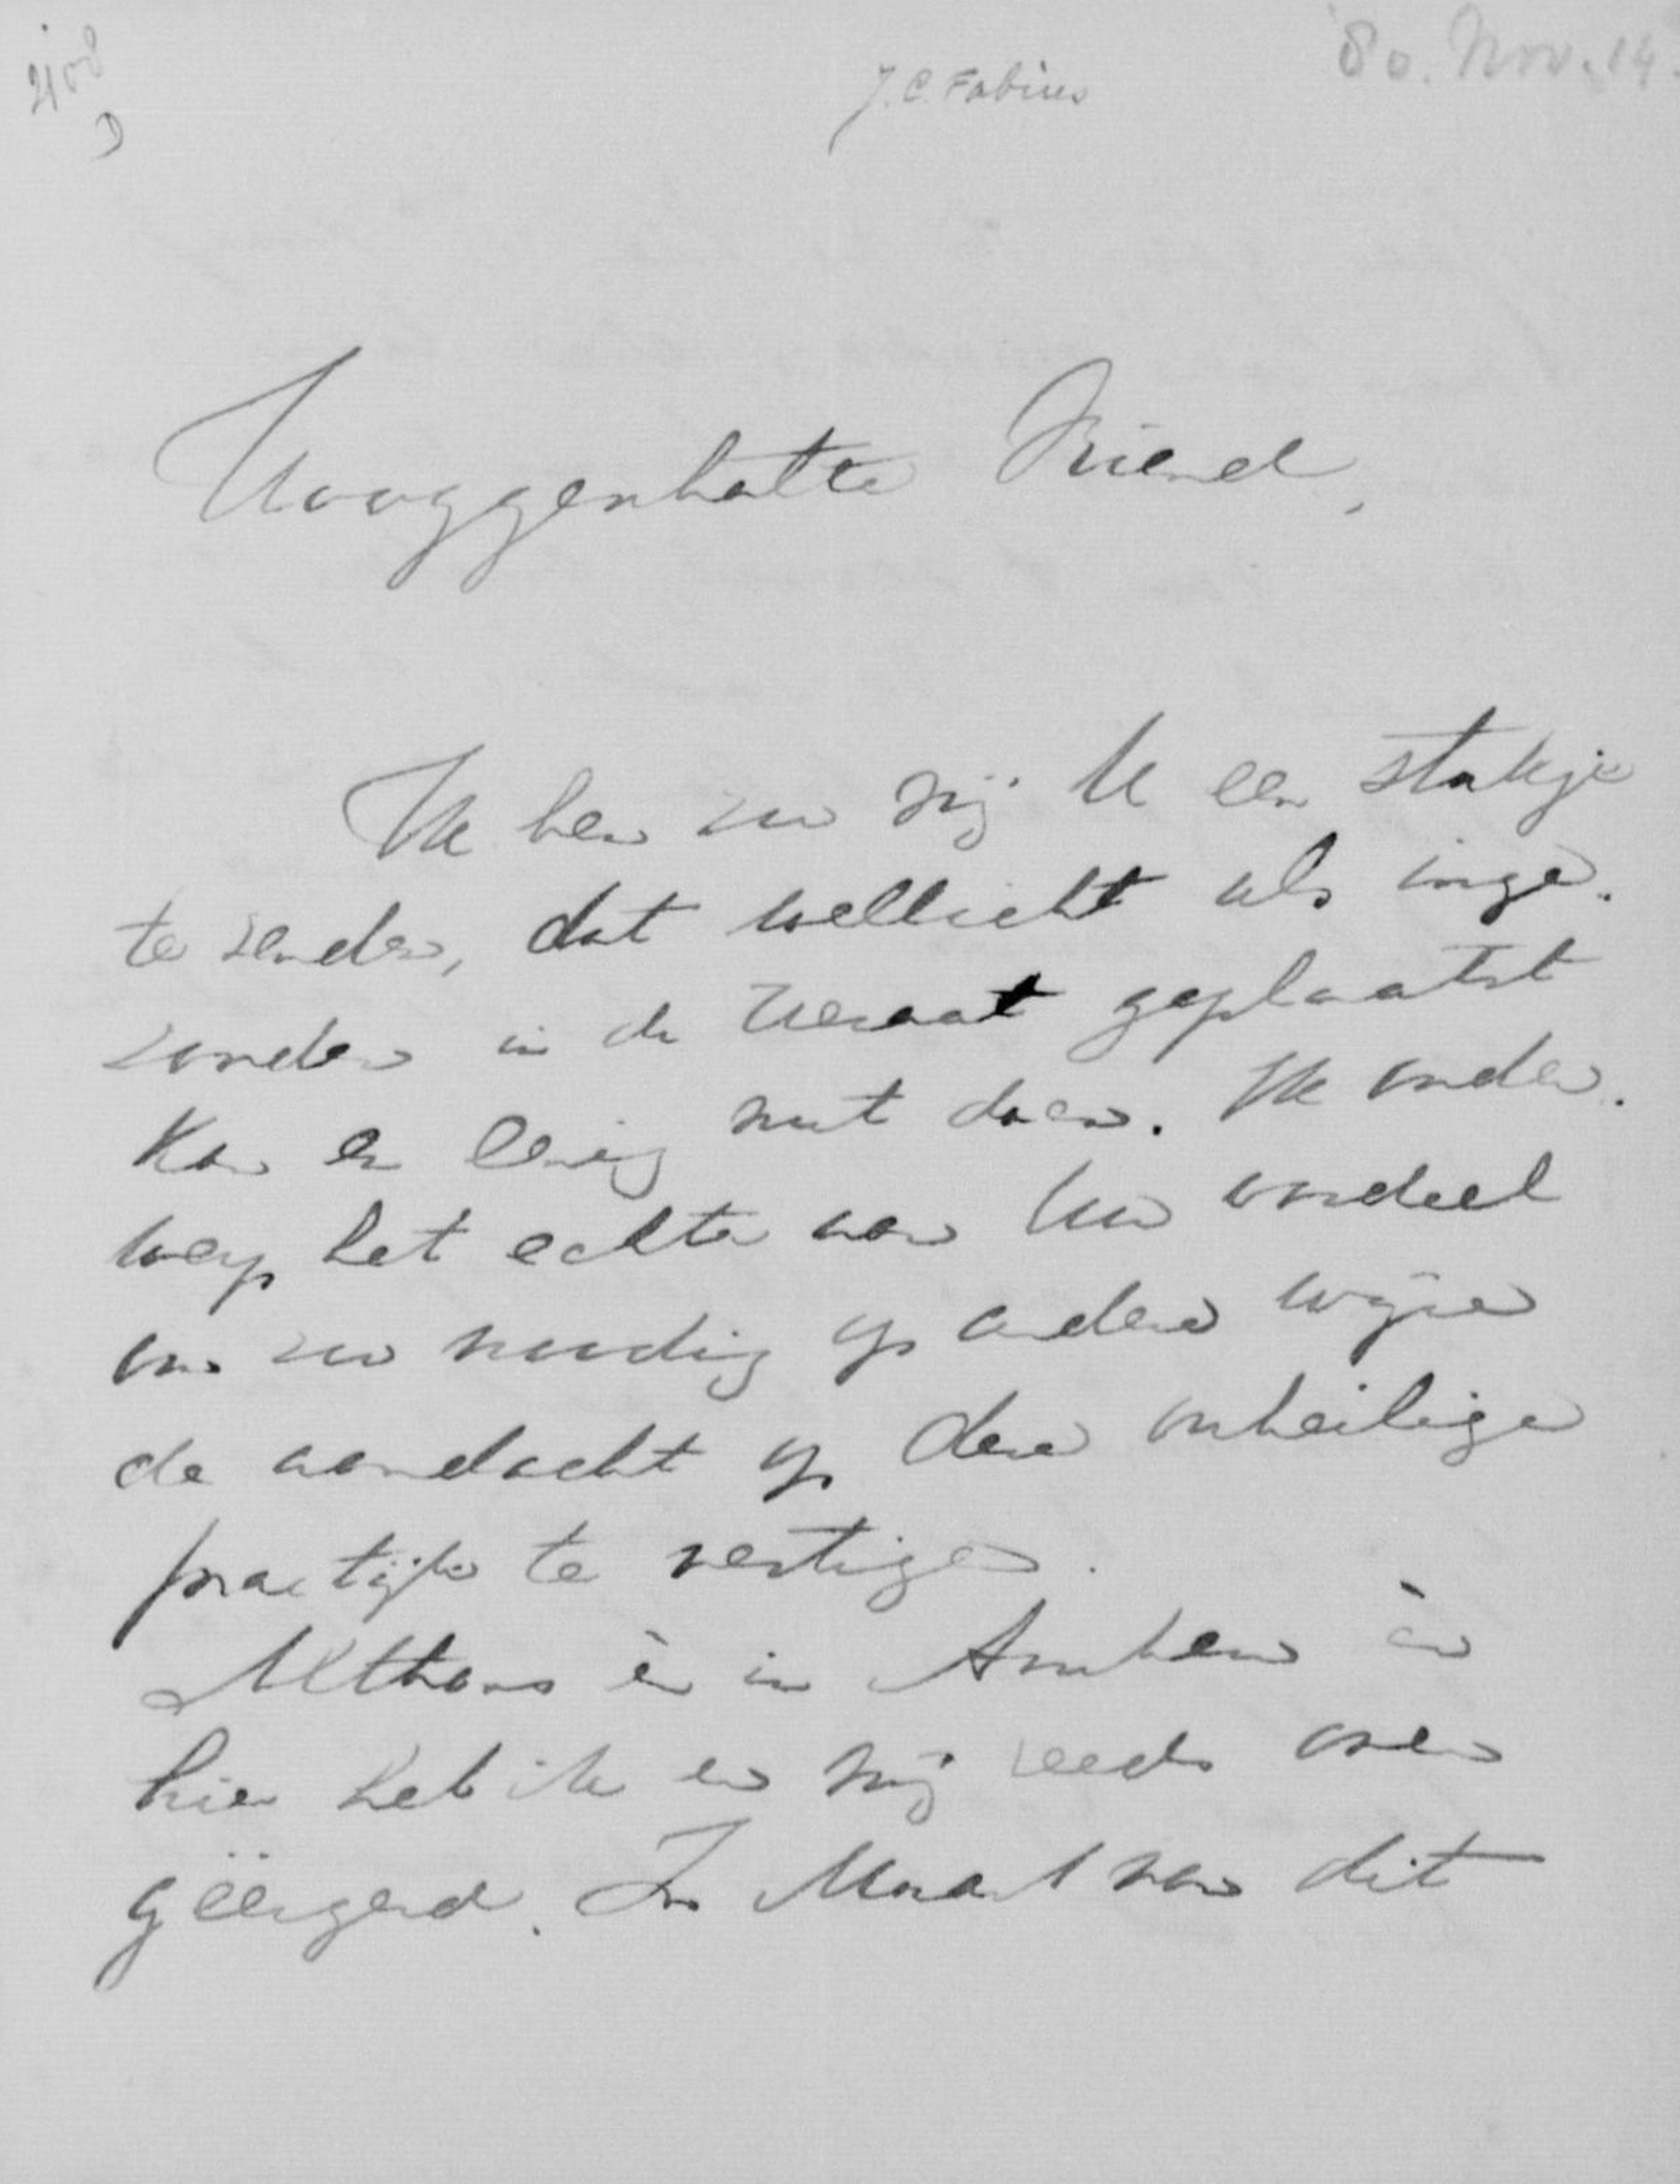 2108
D
J.C. Fabius
80. Nov. 14.
Hooggeschatte Vriend,
Ik ben zoo vrij U een stukje
te zenden, dat wellicht als inge-
zonden in de Heraut geplaatst
kan en eenig nut doen. Ik onder-
werp het echter aan Uw oordeel
om zoo noodig op andere wijze
de aandacht op deze onheilige
practijk te vestigen.
Althans èn in Arnhem èn
hier heb ik er mij reeds over
geërgerd. In Maart van dit